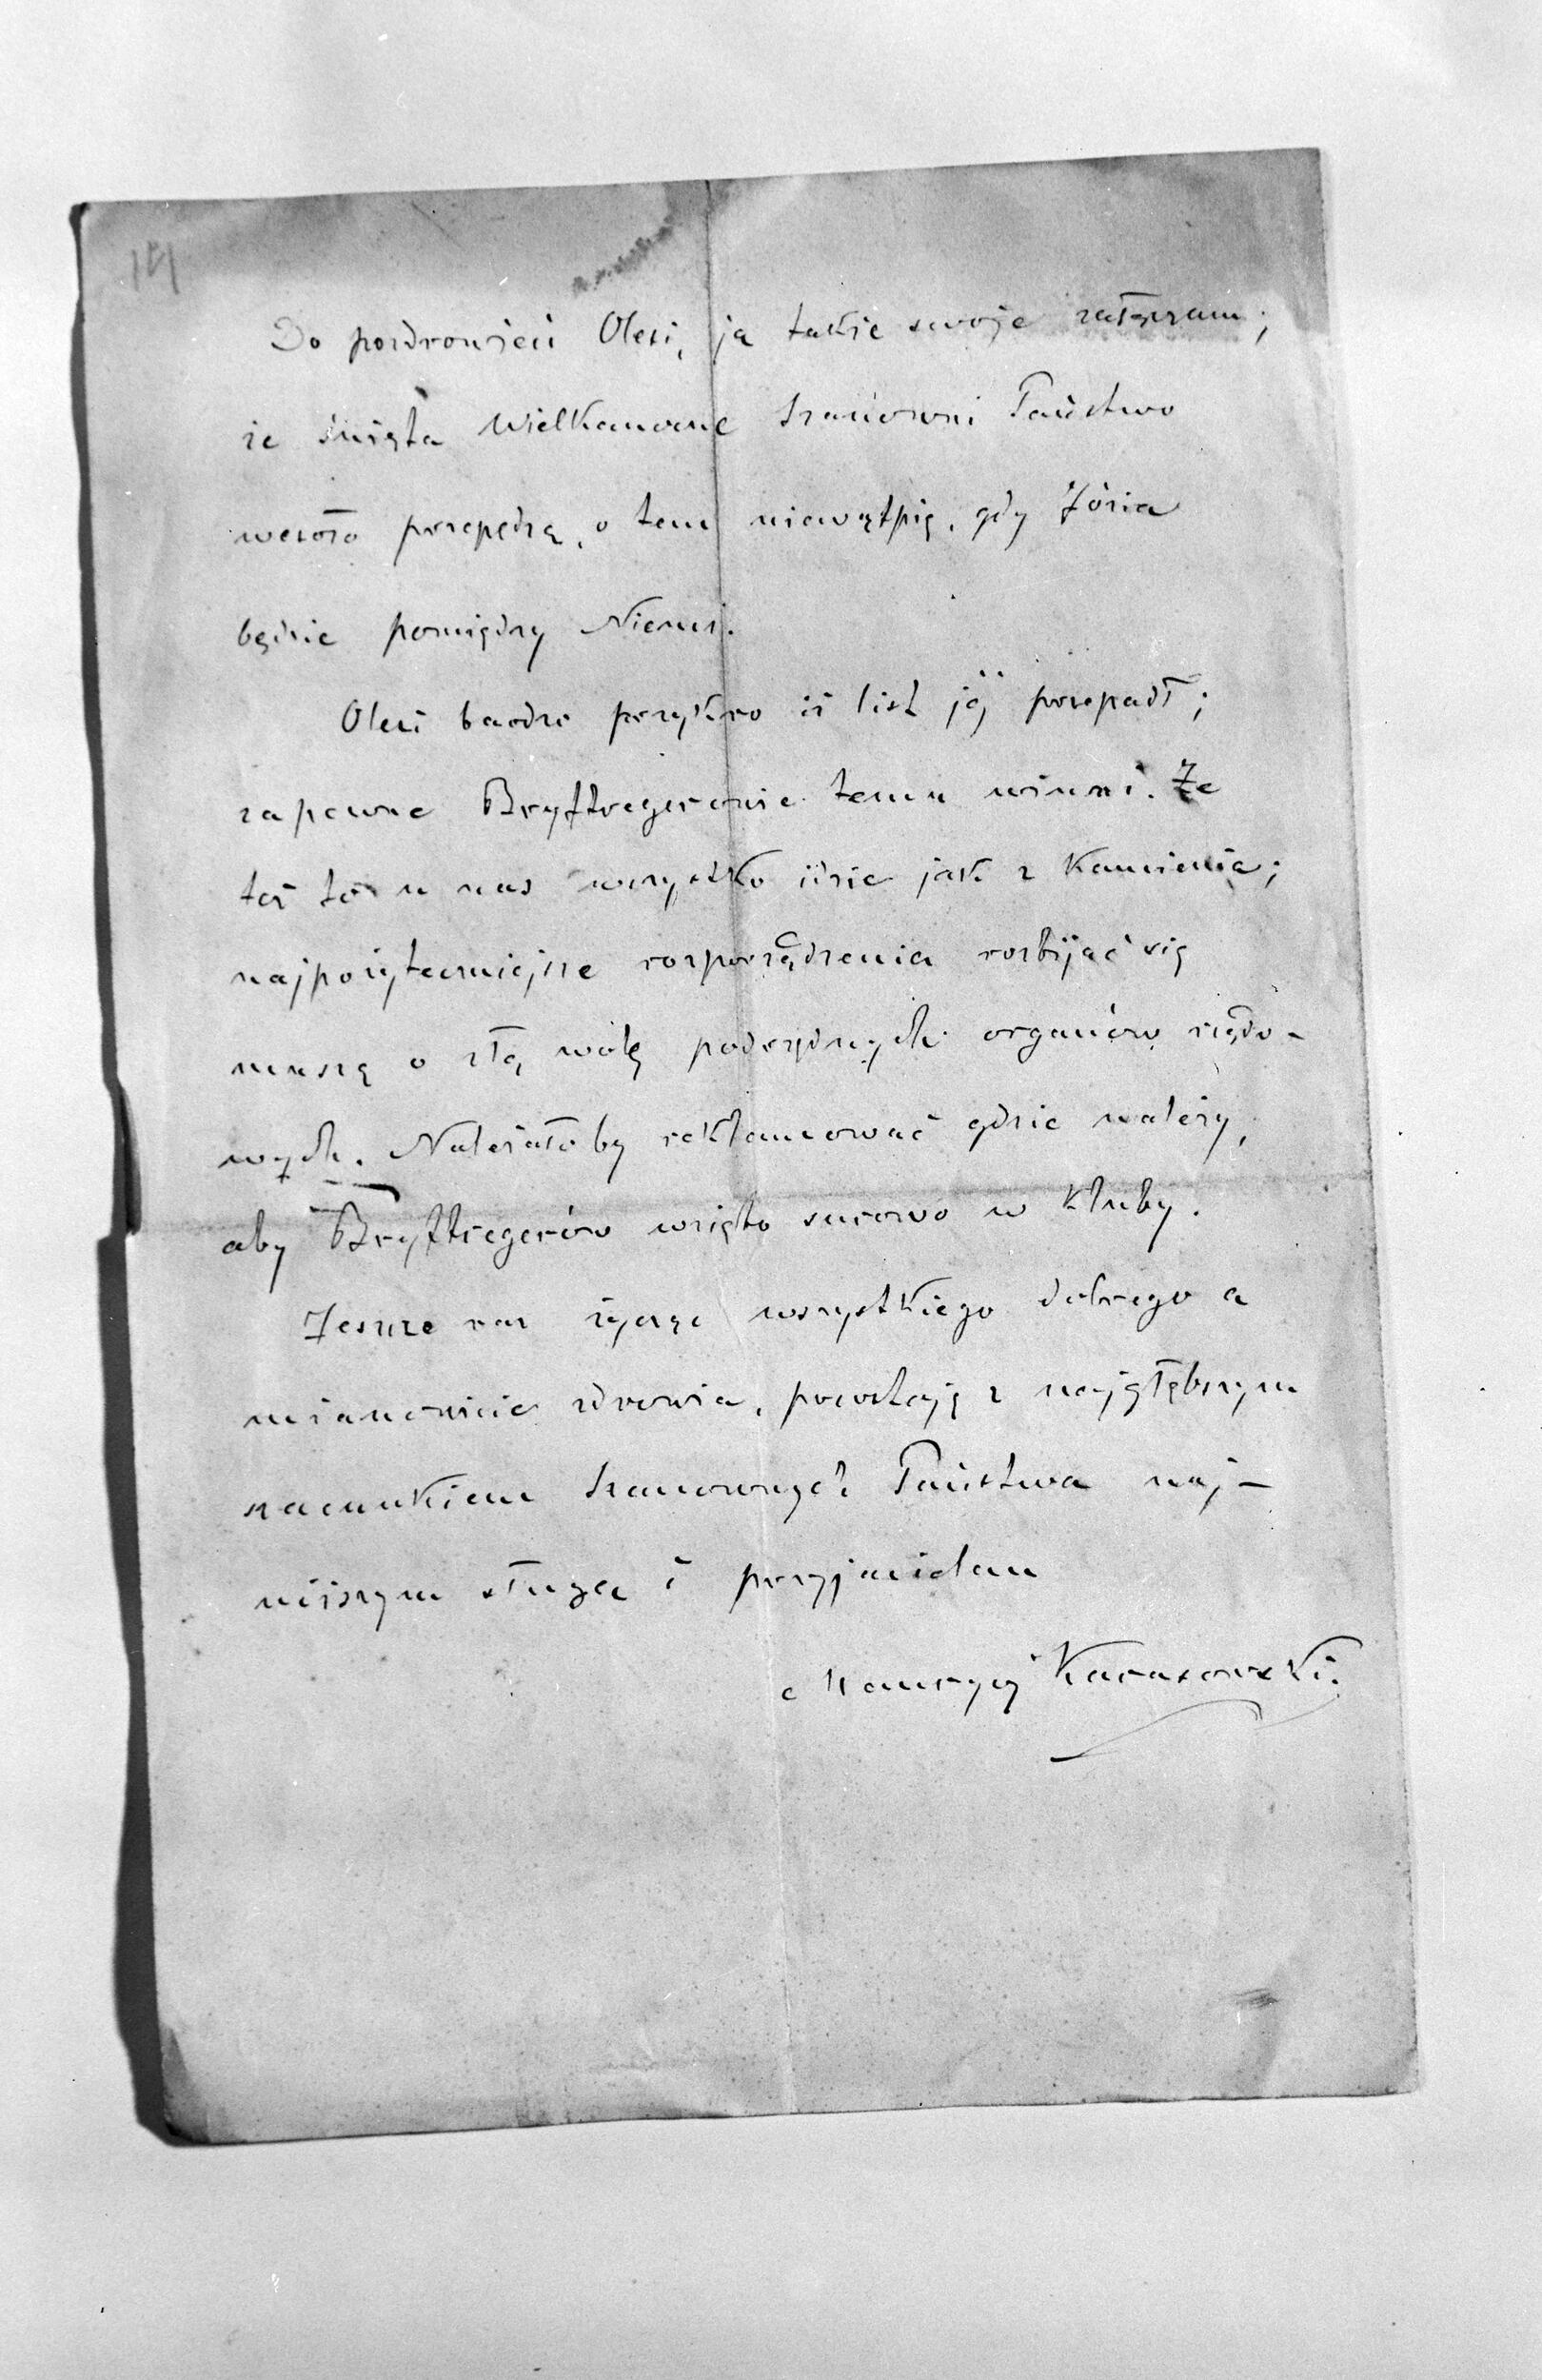 14
Do pozdrowień Olesi, ja także swoje załączam;
że święta Wielkanocne Szanowni Państwo
wesoło przepędzą, o tem niewątpię, gdy Józia
będzie pomiędzy Niemi.
Olesi bardzo przykro iż list jéj przepadł;
zapewne Bryftregerowie temu winni. Że
też to u nas wszystko idzie jak z Kamienia;
najpożyteczniejsze rozporządzenia rozbijać się
muszą o złą wolę podrzędnych organów rządo-
wych. Należałoby reklamować gdzie należy,
aby Bryftregerów wzięto surowo w Kluby.
Jeszcze raz życząc wszystkiego dobrego a
mianowicie zdrowia, pozostaję z najgłębszym
szacunkiem Szanownych Państwa naj-
niższym sługą i przyjacielem
Maurycy Karasowski.